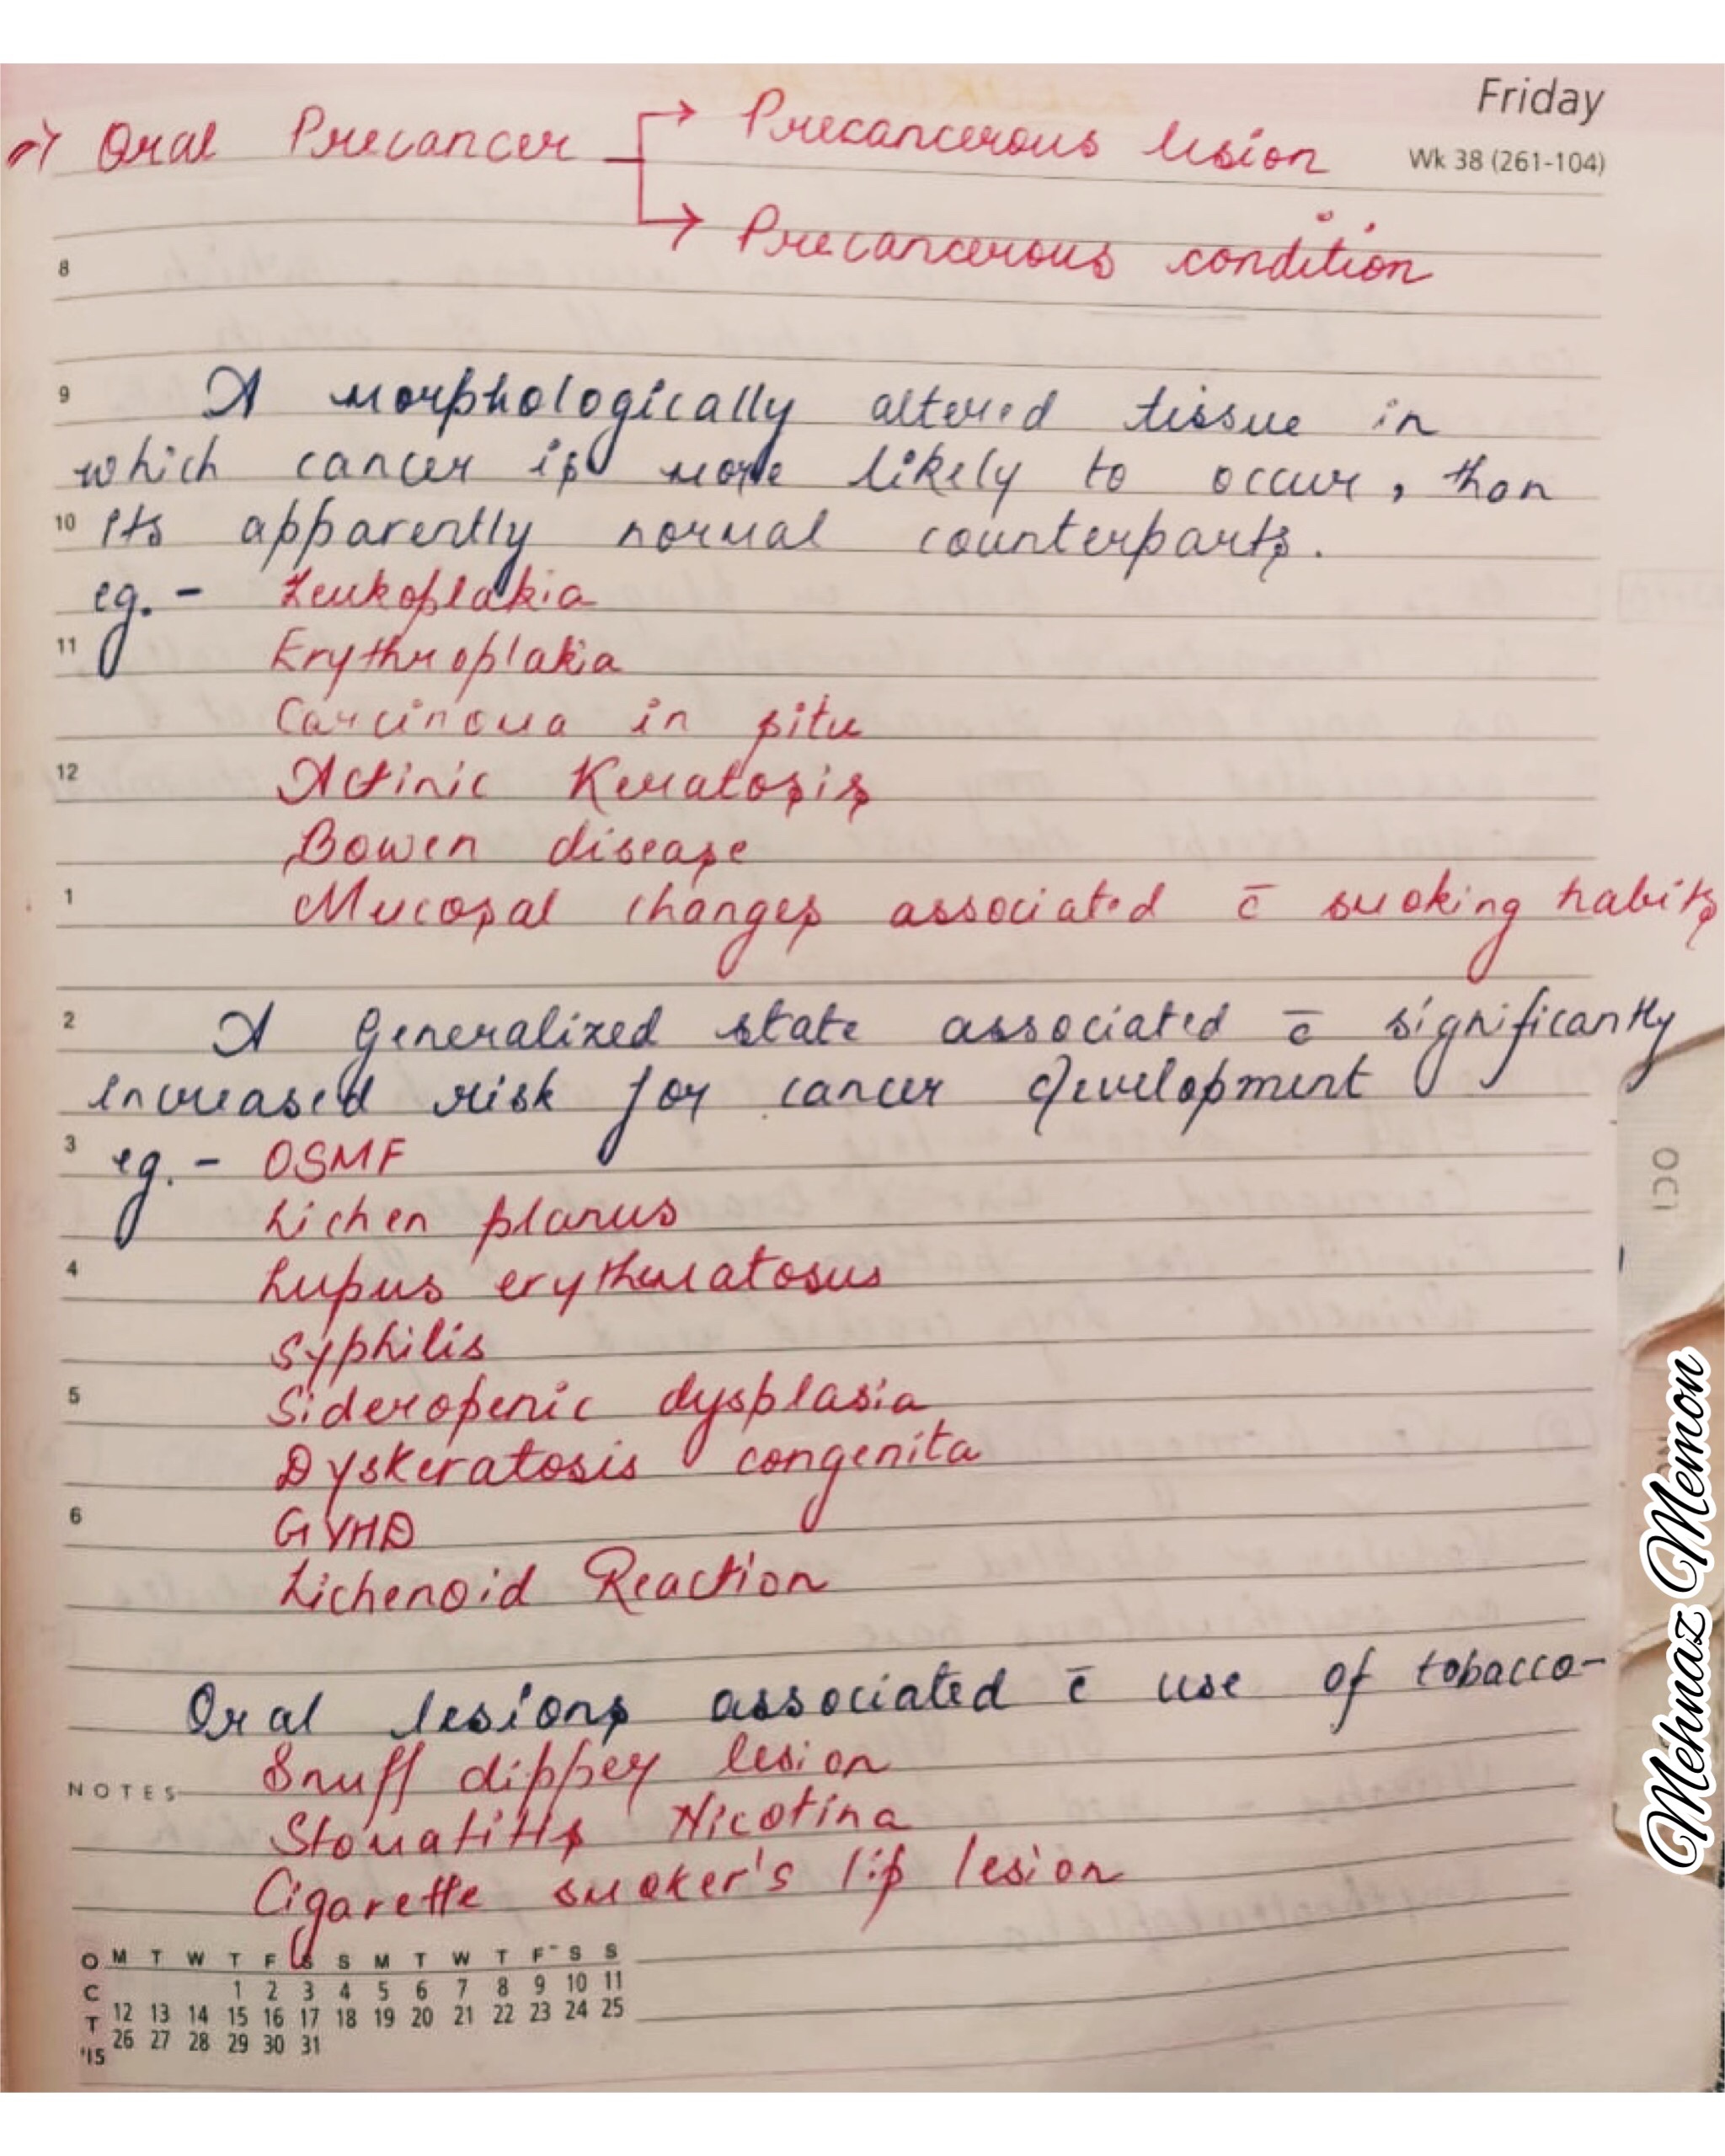 Friday
Wk 38 (261-104)
Oral Precancer → Precancerous lesion
→ Precancerous condition
8
9 A morphologically altered tissue in
which cancer is more likely to occur, than
10 its apparently normal counterparts.
eg. - Leukoplakia
11 Erythroplakia
Carcinoma in situ
12 Actinic Keratosis
Bowen disease
1 Mucosal changes associated c̄ smoking habits
2 A Generalized state associated c̄ significantly
increased risk for cancer development
3 eg. - OSMF
Lichen planus
4 Lupus erythematosus
Syphilis
5 Sideropenic dysplasia
Dyskeratosis congenita
6 GVHD
Lichenoid Reaction
Oral lesions associated c̄ use of tobacco-
NOTES Snuff dipper lesion
Stomatitis Nicotina
Cigarette smoker's lip lesion
OCT '15
M T W T F S S M T W T F S S
1 2 3 4 5 6 7 8 9 10 11
12 13 14 15 16 17 18 19 20 21 22 23 24 25
26 27 28 29 30 31
OCT
Mehnaz Memon